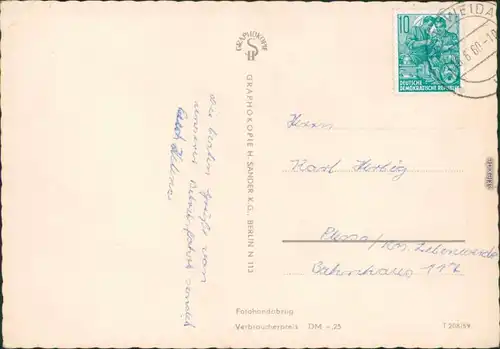 GRAPHOKOPIE
HS
GRAPHOKOPIE H. SANDER K.G., BERLIN N 113
Die besten Grüße von
unserer Betriebsfahrt sendet
10
DEUTSCHE
DEMOKRATISCHE REPUBLIK
WEIDA
6.60-10
Herrn
Karl Herbig
Plessa/Krs. Liebenwerda
Bahnhaus 112
Fotohandabzug
Verbraucherpreis DM -,25
T 208/59